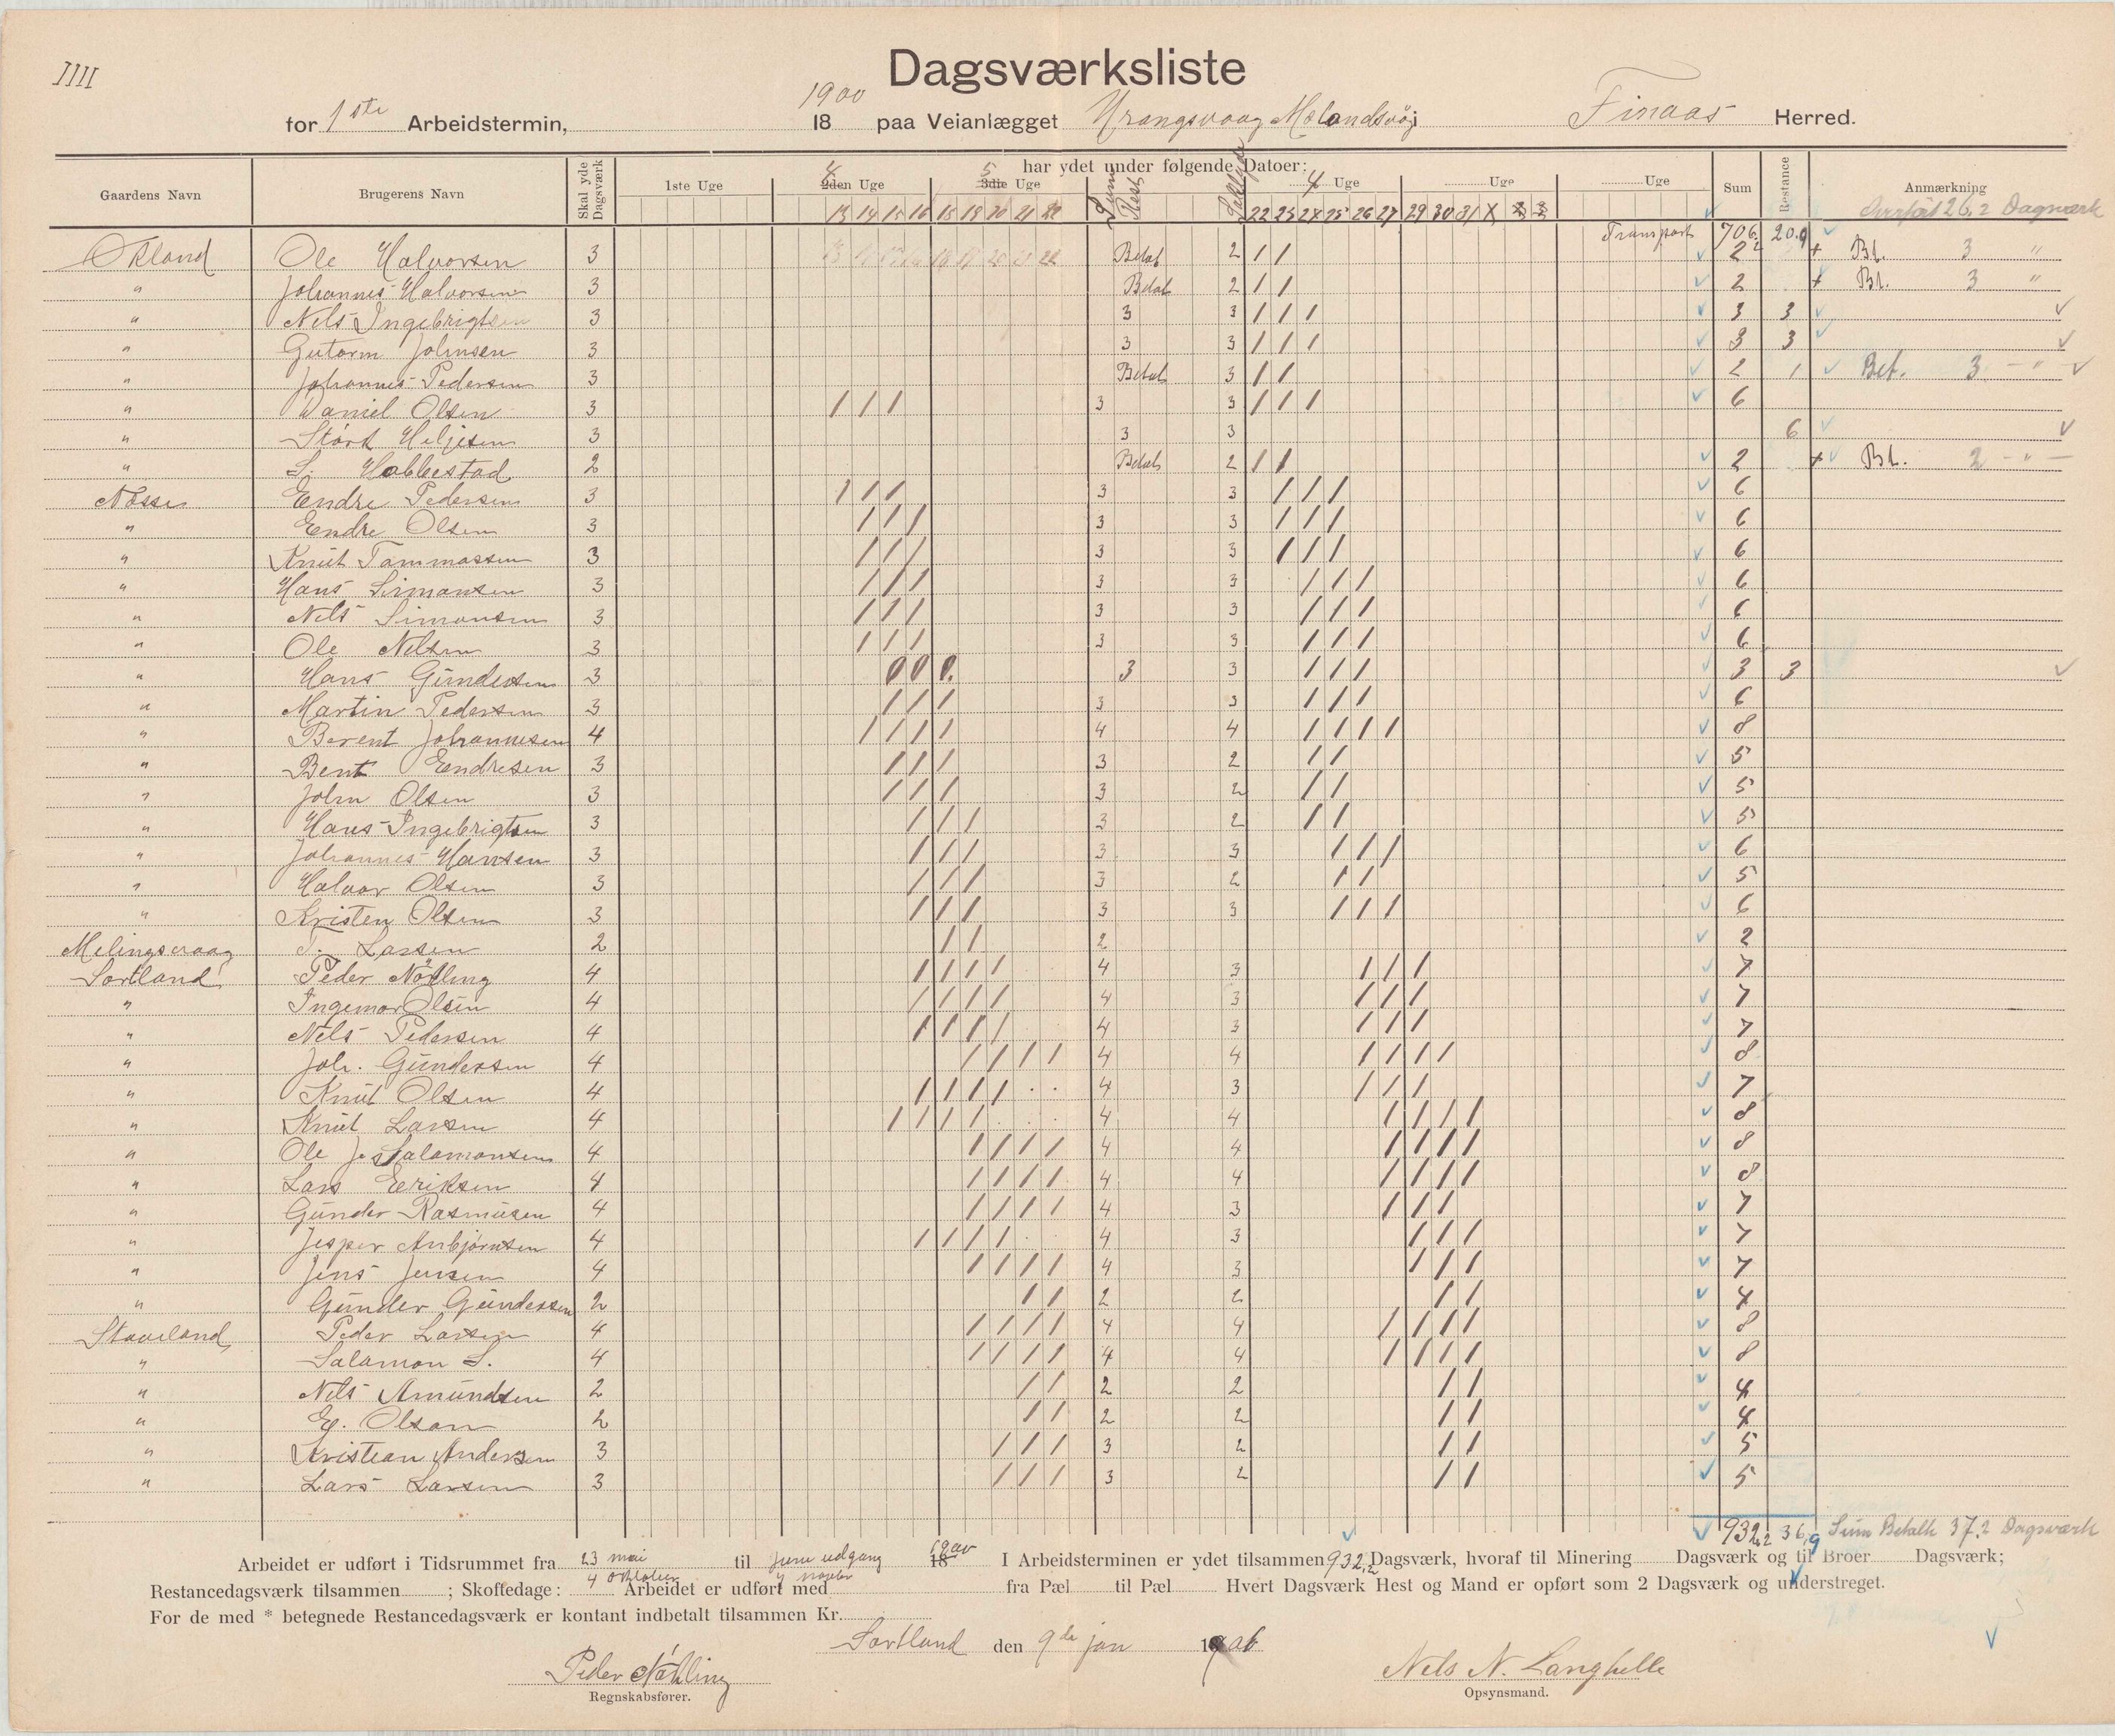 IIII
Dagsværksliste
for 1ste Arbeidstermin, 1900 18 paa Veianlægget Urangsvaag Mølandsvåj Finaas Herred.
Gaardens Navn Brugerens Navn Skal yde Dagsværk har ydet under følgende Datoer: Sum Restance Anmærkning
1ste Uge 2den Uge 3die Uge Rest 4 Uge Uge Uge
13 14 15 16 18 19 20 21 22 22 23 24 25 26 27 29 30 31 Overført 26,2 Dagsværk
Transport 706,2 20,9
Økland Ole Halvorsen 3 Betal 2 / / 2 + Bt. 3 "
" Johannes Halvorsen 3 Betal 2 / / 2 + Bt. 3 "
" Nels Ingebrigtsen 3 3 3 / / / 3 3
" Gutorm Johnsen 3 3 3 / / / 3 3
" Johannes Pedersen 3 Betal 3 / / 2 1 Bet. 3 "
" Daniel Olsen 3 / / / 3 3 / / / 6
" Størk Heljesen 3 3 3 6
" S. Habbestad 2 Betal 2 / / 2 + Bt. 2 "
Nøsse Endre Pedersen 3 / / / 3 3 / / / 6
" Endre Olsen 3 / / / 3 3 / / / 6
" Knut Tommassen 3 / / / 3 3 / / / 6
" Hans Simonsen 3 / / / 3 3 / / / 6
" Nels Simonsen 3 / / / 3 3 / / / 6
" Ole Nelsen 3 / / / 3 3 / / / 6
" Hans Gundersen 3 0 0 0 3 3 / / / 3 3
" Martin Pedersen 3 / / / 3 3 / / / 6
" Berent Johannesen 4 / / / / 4 4 / / / / 8
" Bent Endresen 3 / / / 3 2 / / 5
" John Olsen 3 / / / 3 2 / / 5
" Hans Ingebrigtsen 3 / / / 3 2 / / 5
" Johannes Hansen 3 / / / 3 3 / / / 6
" Halvor Olsen 3 / / / 3 2 / / 5
" Kristen Olsen 3 / / / 3 3 / / / 6
Melingsvaag T. Larsen 2 / / 2 2
Sortland Peder Nøkling 4 / / / / 4 3 / / / 7
" Ingemar Olsen 4 / / / / 4 3 / / / 7
" Nels Pedersen 4 / / / / 4 3 / / / 7
" Joh. Gundersen 4 / / / / 4 4 / / / / 8
" Knut Olsen 4 / / / / 4 3 / / / 7
" Knut Larsen 4 / / / / 4 4 / / / / 8
" Ole J. Salamonsen 4 / / / / 4 4 / / / / 8
" Lars Eriksen 4 / / / / 4 4 / / / / 8
" Gunder Rasmusen 4 / / / / 4 3 / / / 7
" Jesper Anbjørnsen 4 / / / / 4 3 / / / 7
" Jens Jensen 4 / / / / 4 3 / / / 7
" Gunder Gundersen 2 / / 2 2 / / 4
Staveland Peder Larsen 4 / / / / 4 4 / / / / 8
" Salamon S. 4 / / / / 4 4 / / / / 8
" Nels Amundsen 2 / / 2 2 / / 4
" E. Olson 2 / / 2 2 / / 4
" Kristian Andersen 3 / / / 3 2 / / 5
" Lars Larsen 3 / / / 3 2 / / 5
932,2 36,9 Sum Betalt 37,2 Dagsværk
Arbeidet er udført i Tidsrummet fra 23 mai til Juni udgang 1900 18 I Arbeidsterminen er ydet tilsammen 932,2 Dagsværk, hvoraf til Minering Dagsværk og til Broer Dagsværk;
4 oktober 4 novbr
Restancedagsværk tilsammen ; Skoffedage: Arbeidet er udført med fra Pæl til Pæl Hvert Dagsværk Hest og Mand er opført som 2 Dagsværk og understreget.
For de med * betegnede Restancedagsværk er kontant indbetalt tilsammen Kr.
Sortland den 9de jan
Peder Nøkling Nels N. Langhelle
Regnskabsfører. Opsynsmand.